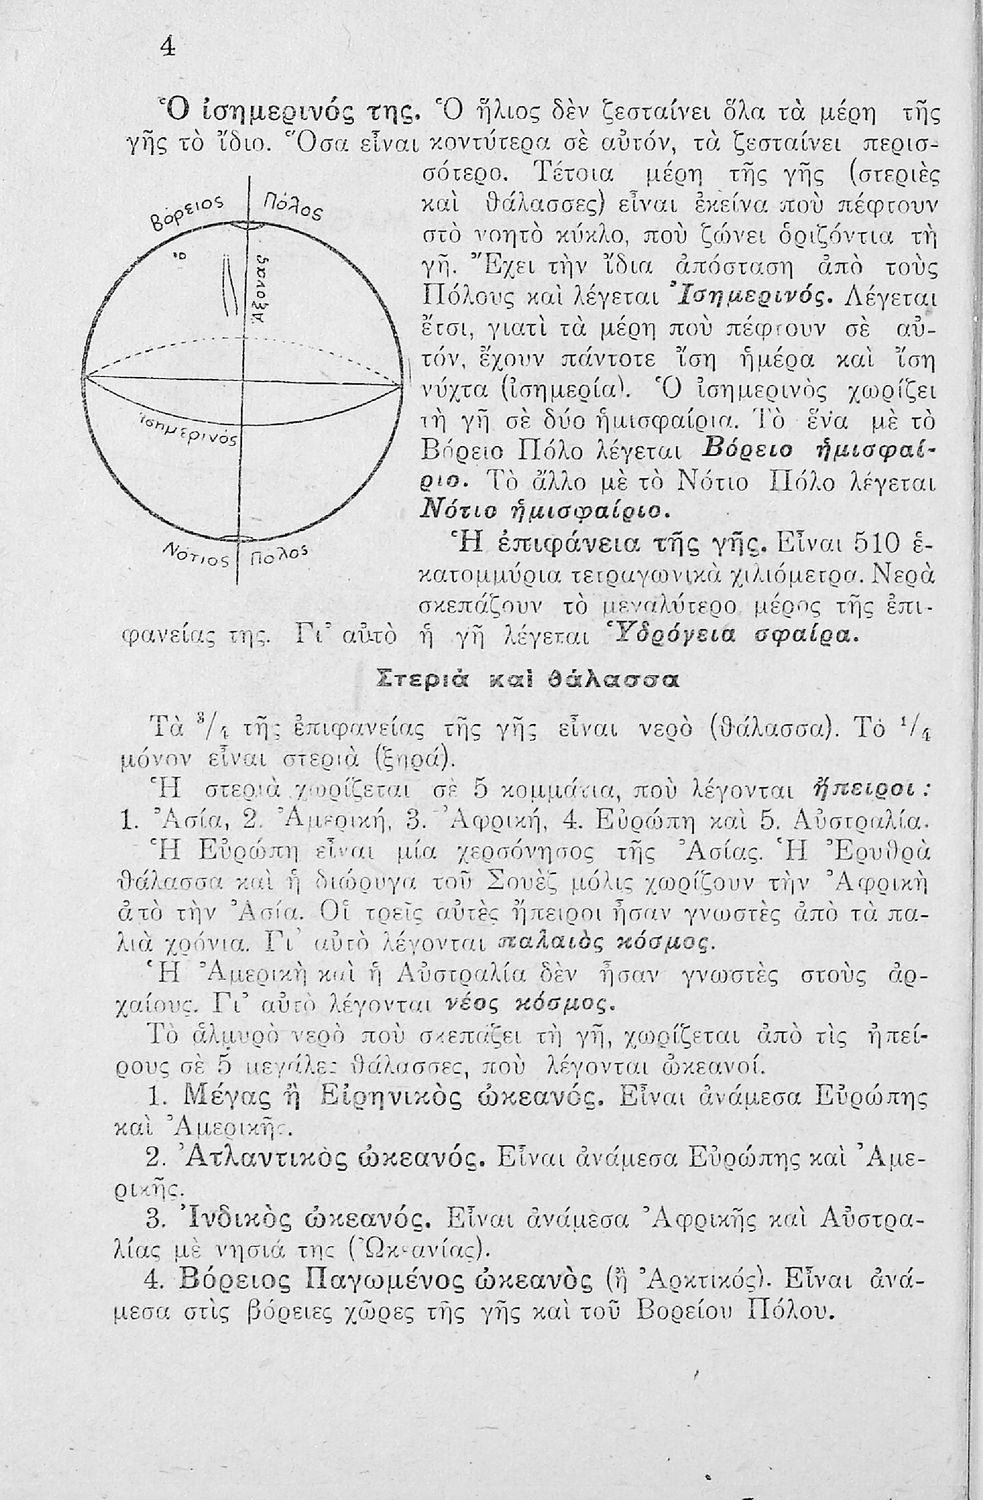 4
Ὁ ἰσημερινός της. Ὁ ἥλιος δὲν ζεσταίνει ὅλα τὰ μέρη τῆς
γῆς τὸ ἴδιο. Ὅσα εἶναι κοντύτερα σὲ αὐτόν, τὰ ζεσταίνει περισ-
σότερο. Τέτοια μέρη τῆς γῆς (στεριὲς
καὶ θάλασσες) εἶναι ἐκεῖνα ποὺ πέφτουν
στὸ νοητὸ κύκλο, ποὺ ζώνει ὁριζόντια τὴ
γῆ. Ἔχει τὴν ἴδια ἀπόσταση ἀπὸ τοὺς
Πόλους καὶ λέγεται Ἰσημερινός. Λέγεται
ἔτσι, γιατὶ τὰ μέρη ποὺ πέφτουν σὲ αὐ-
τόν, ἔχουν πάντοτε ἴση ἡμέρα καὶ ἴση
νύχτα (ἰσημερία). Ὁ ἰσημερινὸς χωρίζει
τὴ γῆ σὲ δύο ἡμισφαίρια. Τὸ ἕνα μὲ τὸ
Βόρειο Πόλο λέγεται Βόρειο ἡμισφαί-
ριο. Τὸ ἄλλο μὲ τὸ Νότιο Πόλο λέγεται
Νότιο ἡμισφαίριο.
Βόρειος Πόλος
Ἄξονας
Ἰσημερινός
Νότιος Πολος
Ἡ ἐπιφάνεια τῆς γῆς. Εἶναι 510 ἑ-
κατομμύρια τετραγωνικὰ χιλιόμετρα. Νερὰ
σκεπάζουν τὸ μεγαλύτερο μέρος τῆς ἐπι-
φανείας της. Γι’ αὐτὸ ἡ γῆ λέγεται Ὑδρόγεια σφαίρα.
Στεριὰ καὶ θάλασσα
Τὰ 3/4 τῆς ἐπιφανείας τῆς γῆς εἶναι νερὸ (θάλασσα). Τὸ 1/4
μόνον εἶναι στεριὰ (ξηρά).
Ἡ στεριὰ χωρίζεται σὲ 5 κομμάτια, ποὺ λέγονται ἤπειροι :
1. Ἀσία, 2. Ἀμερική, 3. Ἀφρική, 4. Εὐρώπη καὶ 5. Αὐστραλία.
Ἡ Εὐρώπη εἶναι μία χερσόνησος τῆς Ἀσίας. Ἡ Ἐρυθρὰ
θάλασσα καὶ ἡ διώρυγα τοῦ Σουὲζ μόλις χωρίζουν τὴν Ἀφρικὴ
ἀπὸ τὴν Ἀσία. Οἱ τρεῖς αὐτὲς ἤπειροι ἦσαν γνωστὲς ἀπὸ τὰ πα-
λιὰ χρόνια. Γι’ αὐτὸ λέγονται παλαιὸς κόσμος.
Ἡ Ἀμερικὴ καὶ ἡ Αὐστραλία δὲν ἦσαν γνωστὲς στοὺς ἀρ-
χαίους. Γι’ αὐτὸ λέγονται νέος κόσμος.
Τὸ ἁλμυρὸ νερὸ ποὺ σκεπάζει τὴ γῆ, χωρίζεται ἀπὸ τὶς ἠπεί-
ρους σὲ 5 μεγάλες θάλασσες, ποὺ λέγονται ὠκεανοί.
1. Μέγας ἢ Εἰρηνικὸς ὠκεανός. Εἶναι ἀνάμεσα Εὐρώπης
καὶ Ἀμερικῆς.
2. Ἀτλαντικὸς ὠκεανός. Εἶναι ἀνάμεσα Εὐρώπης καὶ Ἀμε-
ρικῆς.
3. Ἰνδικὸς ὠκεανός. Εἶναι ἀνάμεσα Ἀφρικῆς καὶ Αὐστρα-
λίας μὲ νησιά της (Ὠκεανίας).
4. Βόρειος Παγωμένος ὠκεανὸς (ἢ Ἀρκτικός). Εἶναι ἀνά-
μεσα στὶς βόρειες χῶρες τῆς γῆς καὶ τοῦ Βορείου Πόλου.